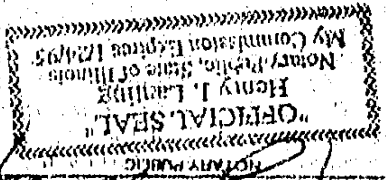 NOTARY PUBLIC
"OFFICIAL SEAL"
Henry J.
Notary Public, State of Illinois
My Commission Expires 1/24/95